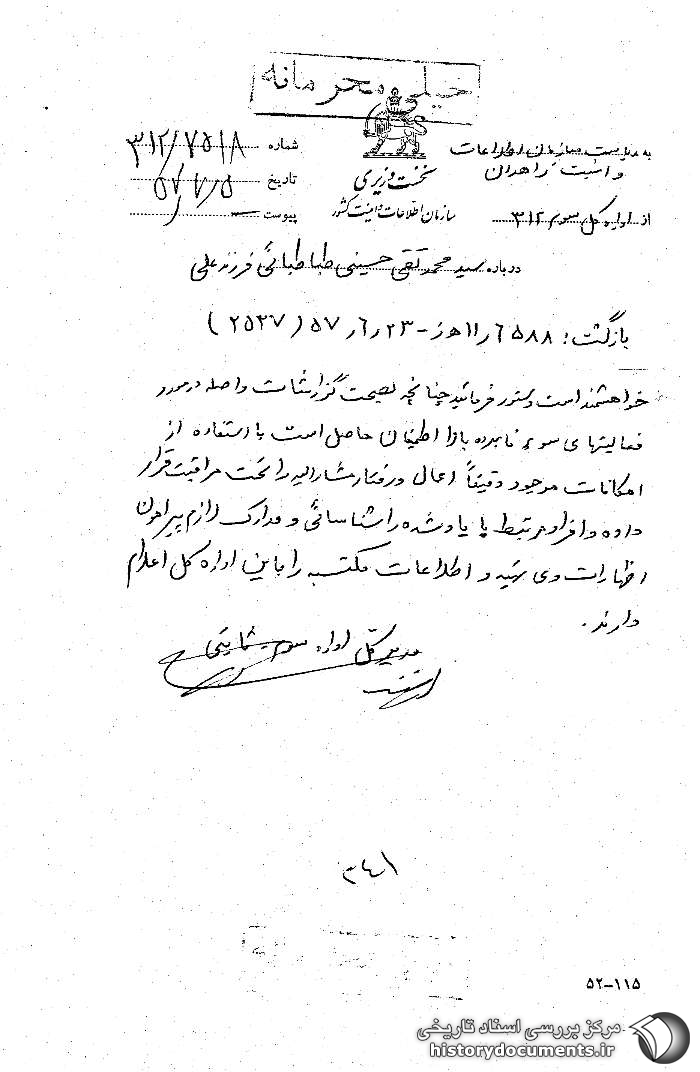 خیلی محرمانه
به مدیریت سازمان اطلاعات
و امنیت زاهدان
از اداره کل سوم ۳۱۲
نخست وزیری
سازمان اطلاعات و امنیت کشور
شماره ۳۱۲/۷۵۱۸
تاریخ ۵۷/۷/۵
پیوست
درباره سید محمد تقی حسینی طباطبائی فرزند علی
بازگشت: ۶۵۸۸/۱۱ه‍ز-۵۷/۶/۲۳ (۲۵۳۷)
خواهشمند است دستور فرمائید چنانچه بصحت گزارشات واصله در مورد
فعالیتهای سوء نامبرده بالا اطمینان حاصل است با استفاده از
امکانات موجود دقیقاً اعمال و رفتار مشارالیه را تحت مراقبت قرار
داده و افراد مرتبط با یاد شده را شناسائی و مدارک لازم پیرامون
اظهارات وی تهیه و اطلاعات مکتسبه را باین اداره کل اعلام
دارند.
مدیر کل اداره سوم ثابتی
۳۴۱
۵۲-۱۱۵
مرکز بررسی اسناد تاریخی
historydocuments.ir